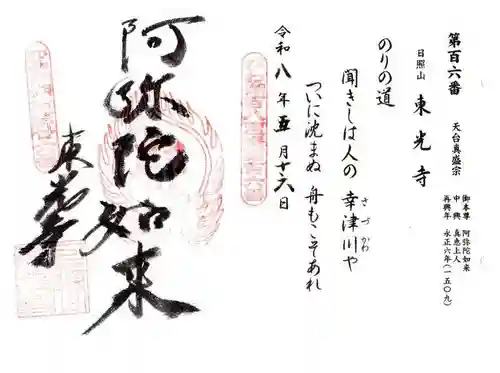 第百六番 天台真盛宗
日照山 東光寺
御本尊 阿弥陀如来
中興 真恵上人
再興年 永正六年(一五〇九)
のりの道
聞きしは人の 幸津川や
さづかわ
ついに沈まぬ 舟もこそあれ
令和八年五月十六日
阿弥陀如来
東光寺